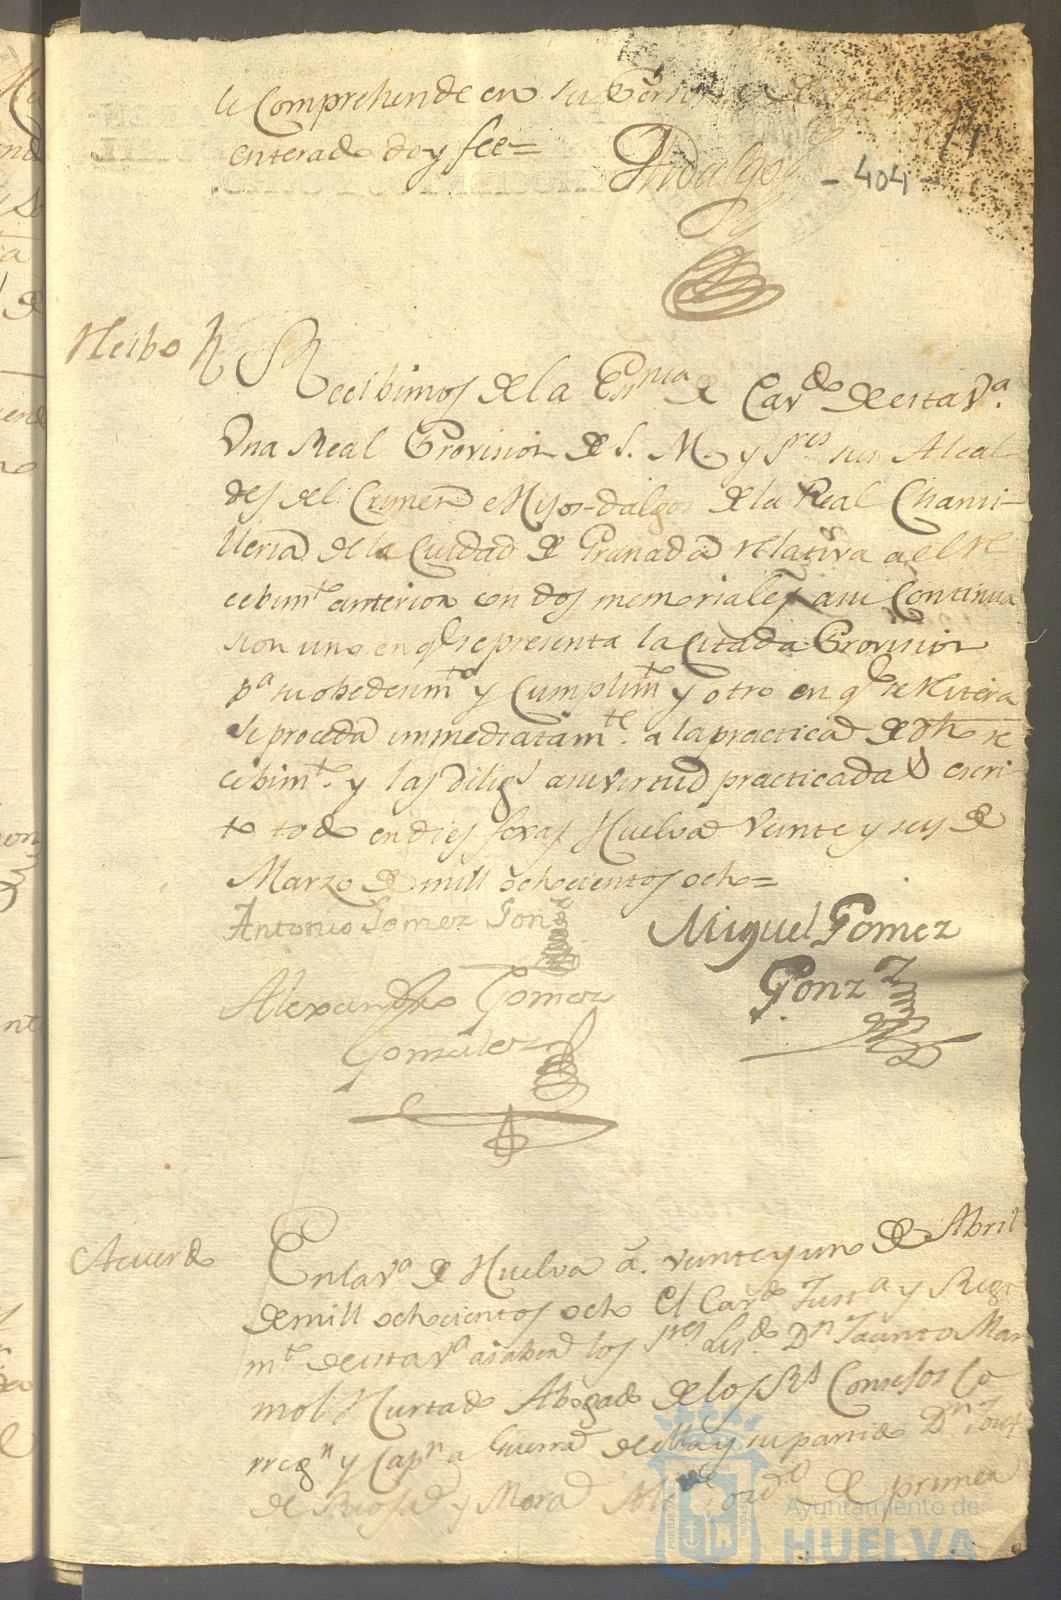 le Comprehende en su Persona
enterado doy fee=
Hidalgo
- 404 -
Recibo
Recibimos de la Esnia de Cavdo de esta Va.
Una Real Provision de S. M. y Sres sus Alcal-
des del Crimen e Hijos-dalgo de la Real Chanci-
lleria de la Ciudad de Granada relativa a el re
cebimto anterior con dos memoriales a su Continua
sion uno en q. se presenta la Citada Provision
pa su obedesimto y Cumplimto y otro en q. se reitera
se proceda immediatamte. a la practica de dho re
cibimto. y las diligs a su virtud practicadas escri-
to todo en dies foxas Huelva Veinte y seis de
Marzo de mill ochocientos ocho=
Antonio Gomez Gonz
Miguel Gomez
Gonzz
Alexandro Gomez
Gonzalez
Acuerdo
En la va de Huelva a. veinte y uno de Abril
de mill ochocientos ocho El Cavdo Justa y Regi
mto de esta Va a saber los Sres Lisdo. Dn Jacinto Mar
mol Hurtado Abogado de los Rs Consejos Co
rregn y Capn a Guerra de ella y su partido Dn Josef
de Rioja y Mora Alce ordo de primera
Ayuntamiento de
HUELVA